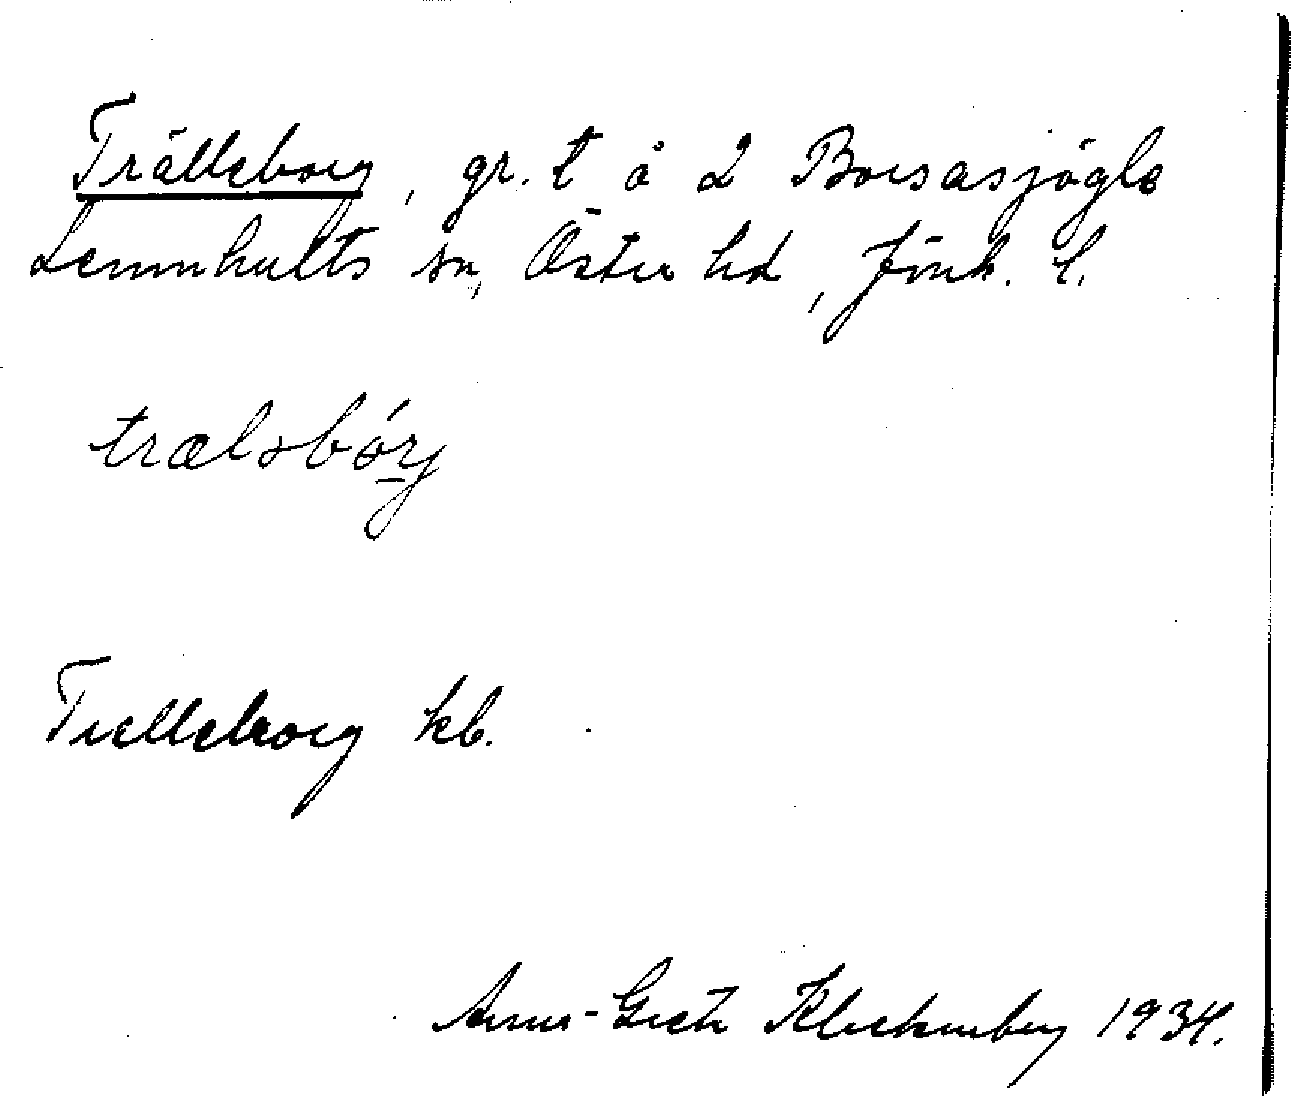 Trälleborg, gr. t å 2 Boısasjögle
Lemnhults sn, Östra hd, Jönk. l.
trælsbórj
Trelleborg kb.
Anna-Greta Klockenberg 1934.